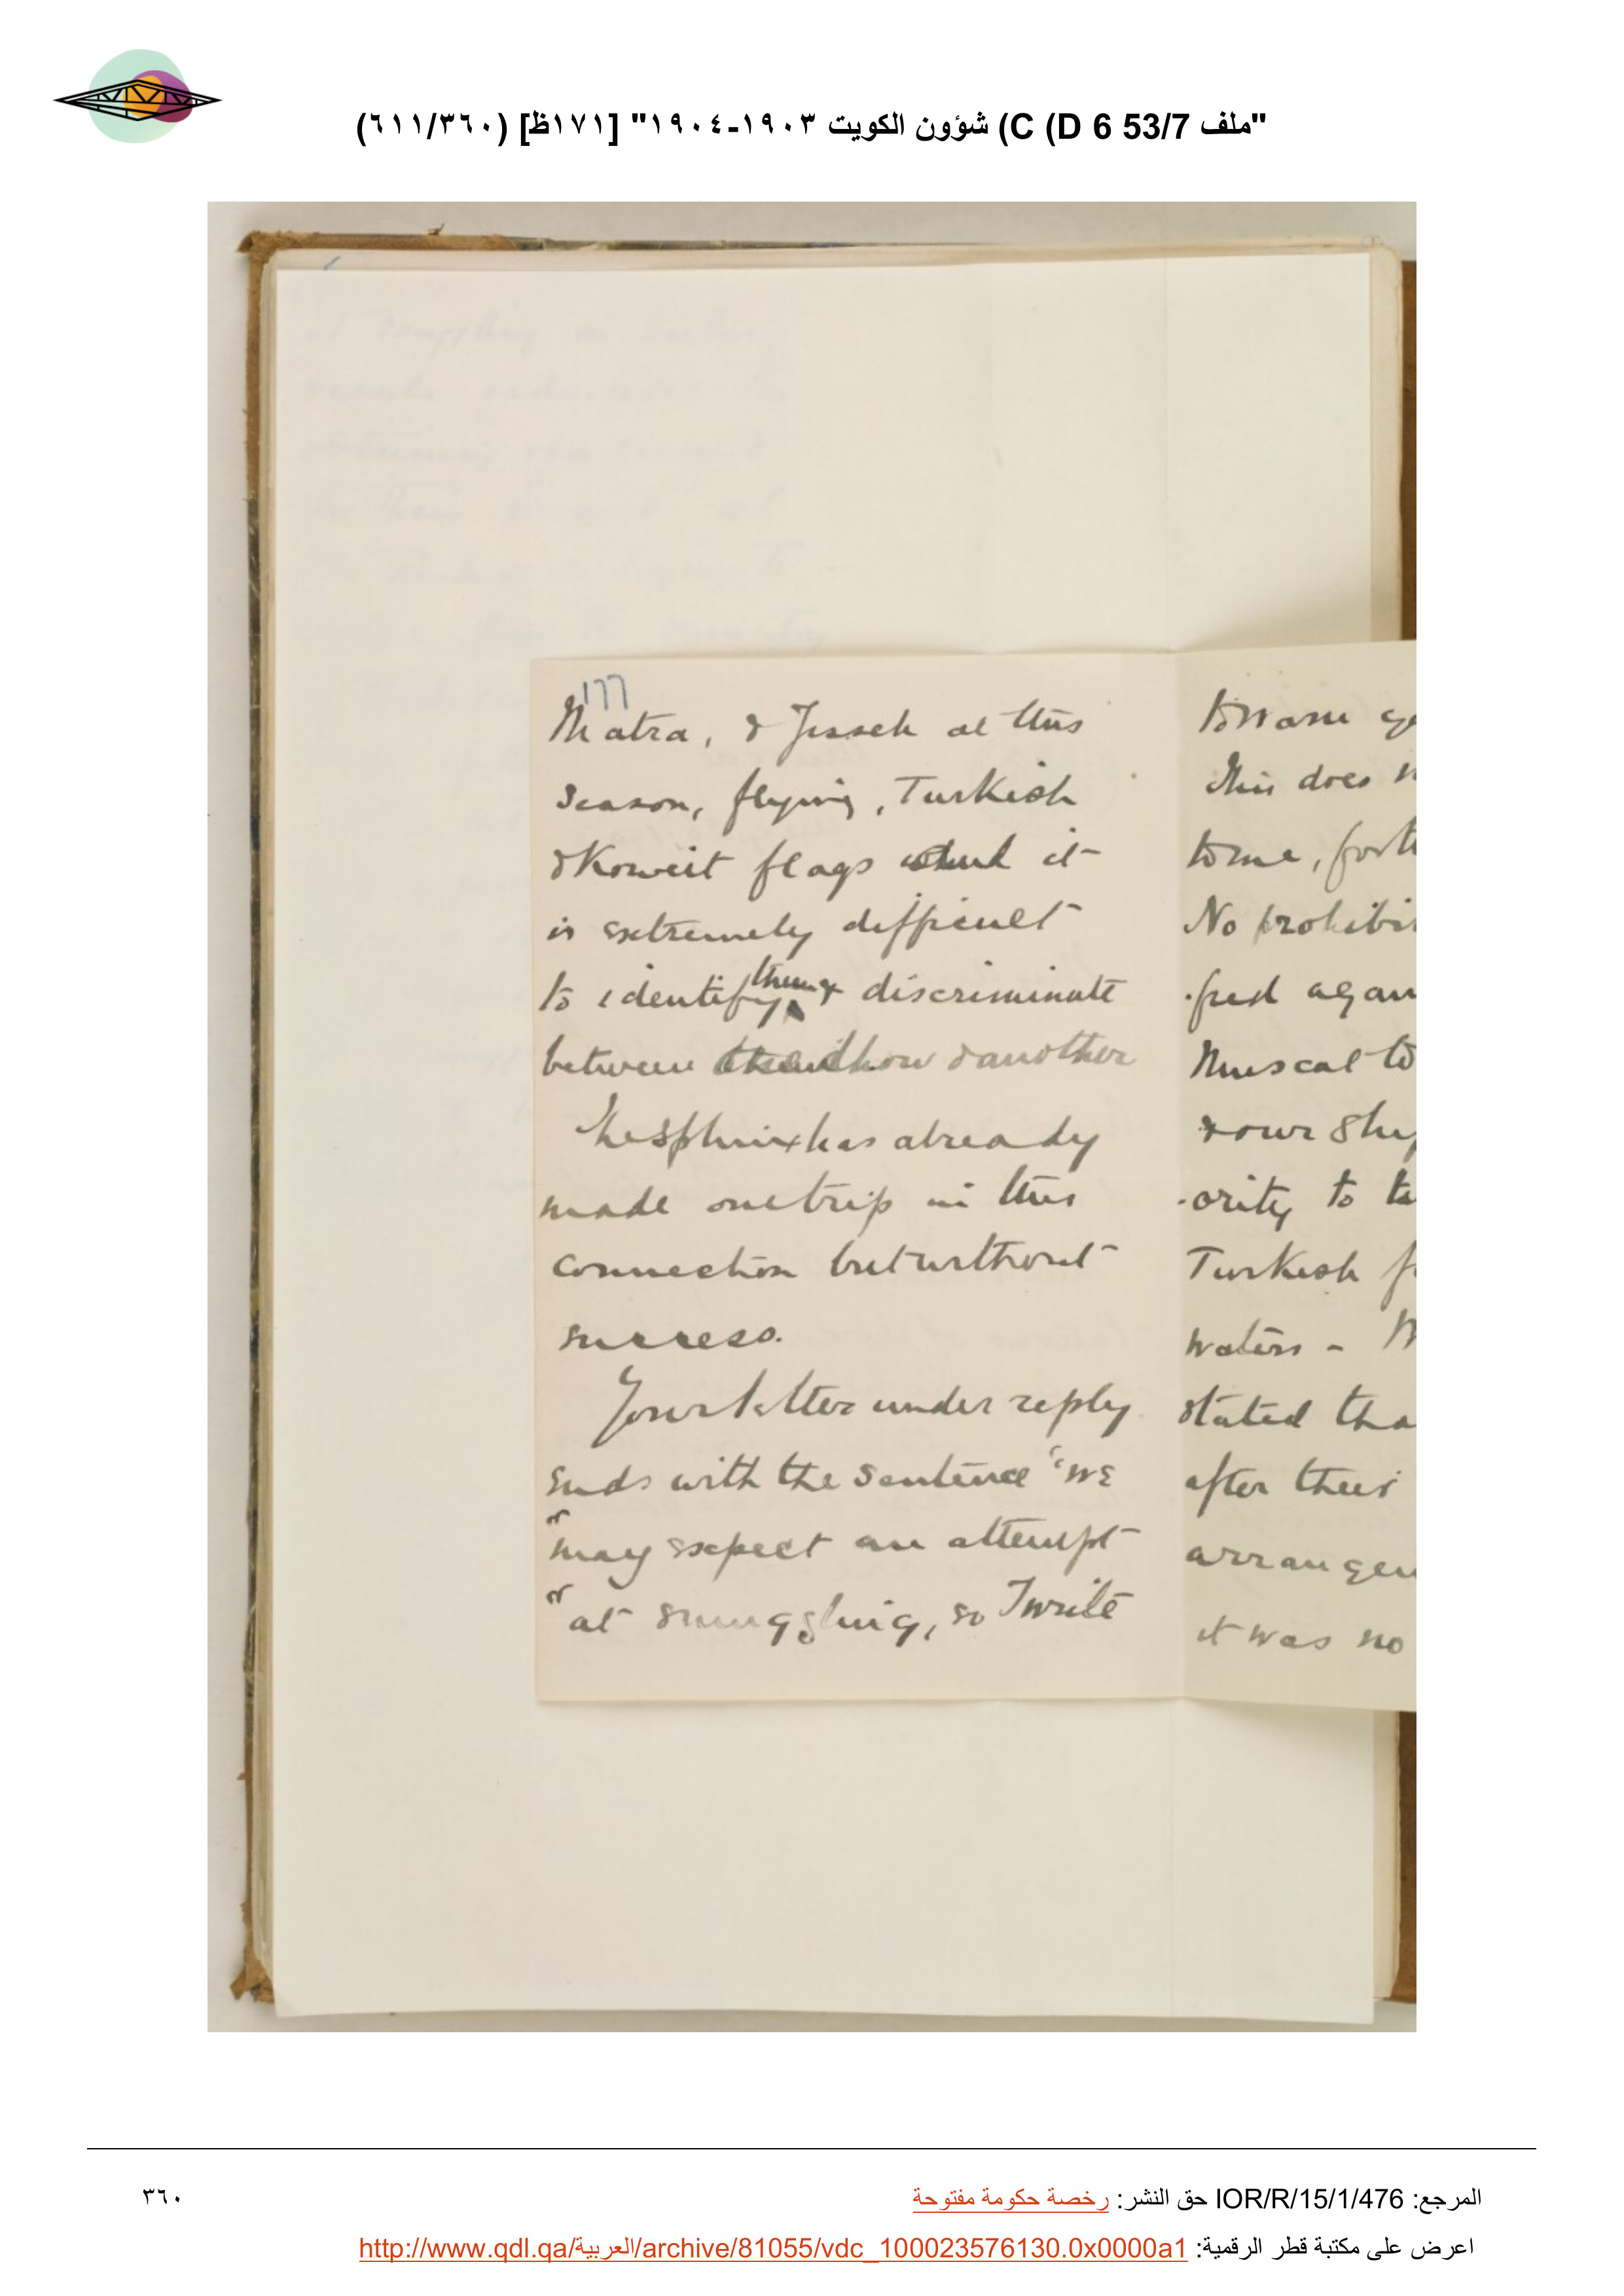 "ملف 53/7 C (D 6) شؤون الكويت ١٩٠٣-١٩٠٤" [١٧١ظ] (٣٦٠/٦١١)
177
Matra, & Jisseh at this
season, flying, Turkish
& Koweit flags it
is extremely difficult
to identify them & discriminate
between dhow & another
The Sphinx has already
made one trip in this
connection but without
success.
Your letter under reply
ends with the sentence "we
" may expect an attempt
" at smuggling, so I write
to warn
This does
to me, for
No prohibi
agan
Muscat to
your
-ority to
Turkish
waters -
stated tha
after their
arrangem
it was no
المرجع: IOR/R/15/1/476 حق النشر: رخصة حكومة مفتوحة
٣٦٠
اعرض على مكتبة قطر الرقمية: http://www.qdl.qa/العربية/archive/81055/vdc_100023576130.0x0000a1